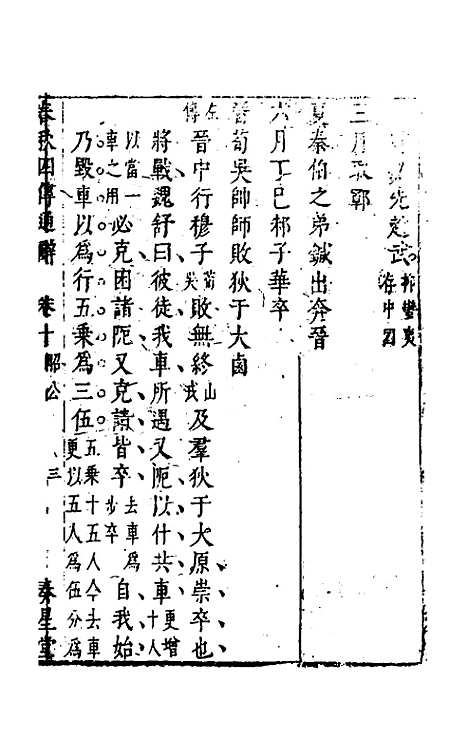 先楚武抑蠻夷存中國
三月取鄆
夏秦伯之弟鍼出奔晉
六月丁巳邾子華卒
晉荀吳帥師敗狄于大鹵
左傳晉中行穆子荀吳敗無終山戎及羣狄于大原崇卒也
將戰魏舒曰彼徒我車所遇又阨以什共車更增十人
以當一車之用必克困諸阨又克請皆卒去車爲步卒自我始
乃毀車以爲行五乘爲三伍五乘十五人今去車更以五人爲伍分爲
春秋四傳通辭 卷十 昭公 三 奏星堂